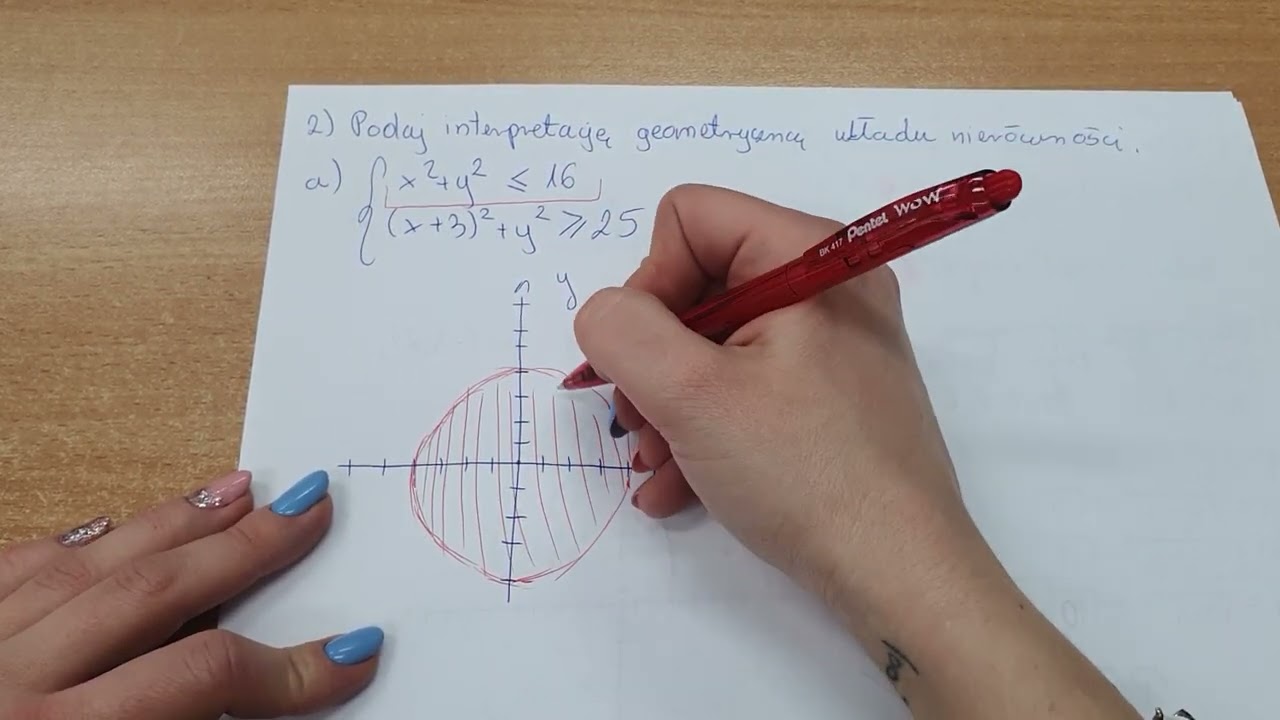 2) Podaj interpretację geometryczną układu nierówności.
a) { x²+y² ≤ 16
(x+3)²+y² ≥ 25
y
BK 417 Pentel WOW